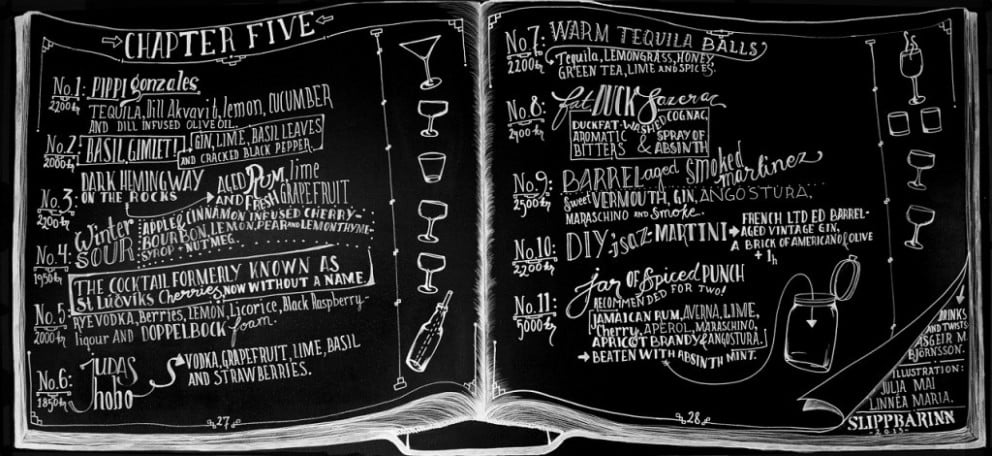 CHAPTER FIVE
No.1: PIPPI gonzales
2200kr TEQUILA, Dill Akvavit, lemon, CUCUMBER
AND DILL INFUSED OLIVE OIL.
No.2: BASIL GIMLET! GIN, LIME, BASIL LEAVES
2200kr AND CRACKED BLACK PEPPER.
DARK HEMINGWAY AGED Rum, lime
No.3 ON THE ROCKS AND FRESH GRAPEFRUIT
2300kr
Winter APPLE & CINNAMON INFUSED CHERRY-
No.4: SOUR BOURBON, LEMON, PEAR AND LEMONTHYME-
1950kr SYROP + NUTMEG.
THE COCKTAIL FORMERLY KNOWN AS
St LUÐVIKS Cherries, NOW WITHOUT A NAME.
No.5: RYE VODKA, Berries, LEMON, Licorice, Black Raspberry-
2000kr liqour AND DOPPELBOCK foam.
JUDAS VODKA, GRAPEFRUIT, LIME, BASIL
No.6: hobo AND STRAWBERRIES.
1850kr
27
No.7: WARM TEQUILA BALLS
2200kr Tequila, LEMONGRASS, HONEY,
GREEN TEA, LIME AND SPICES.
No.8: fat DUCK Sazerac
2400kr DUCKFAT-WASHED COGNAC,
AROMATIC SPRAY OF
BITTERS & ABSINTH
No.9: BARREL aged smoked martinez
2500kr Sweet VERMOUTH, GIN, ANGOSTURA,
MARASCHINO and Smoke.
No.10: DIY; isaz-MARTINI FRENCH LTD ED BARREL-
2200kr AGED VINTAGE GIN,
A BRICK OF AMERICANO & OLIVE
jar OF Spiced PUNCH
No.11: RECOMMENDED FOR TWO!
5000kr JAMAICAN RUM, AVERNA, LIME,
Cherry, APEROL, MARASCHINO,
APRICOT BRANDY & ANGOSTURA.
BEATEN WITH ABSINTH MINT.
28
DRINKS
AND TWISTS:
ÁSGEIR M.
BJÖRNSSON.
ILLUSTRATION:
JULIA MAI
LINNÉA MARIA.
SLIPPBARINN
2013